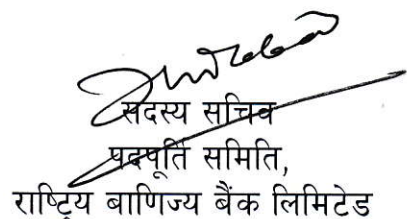 सदस्य सचिव
पदपूर्ति समिति,
राष्ट्रिय बाणिज्य बैंक लिमिटेड